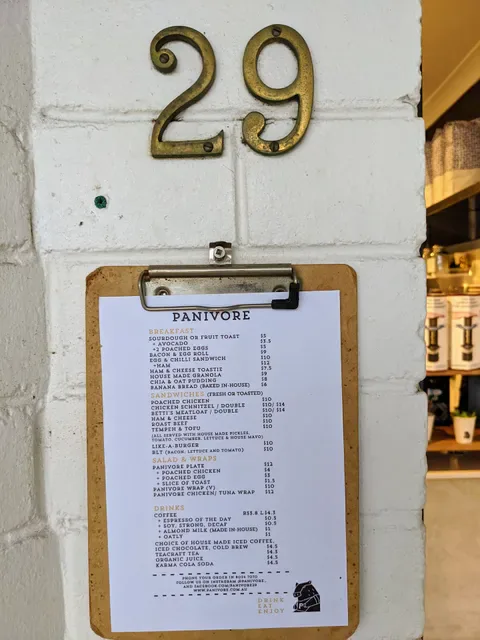 29
PANIVORE
BREAKFAST
SOURDOUGH OR FRUIT TOAST $5
+ AVOCADO $3.5
+2 POACHED EGGS $5
BACON & EGG ROLL $9
EGG & CHILLI SANDWICH $10
+HAM $12
HAM & CHEESE TOASTIE $7.5
HOUSE MADE GRANOLA $9
CHIA & OAT PUDDING $8
BANANA BREAD (BAKED IN-HOUSE) $6
SANDWICHES (FRESH OR TOASTED)
POACHED CHICKEN $10
CHICKEN SCHNITZEL / DOUBLE $10/ $14
BETTI'S MEATLOAF / DOUBLE $10/ $14
HAM & CHEESE $10
ROAST BEEF $10
TEMPEH & TOFU $10
(ALL SERVED WITH HOUSE MADE PICKLES,
TOMATO, CUCUMBER, LETTUCE & HOUSE MAYO)
LIKE-A-BURGER $10
BLT (BACON, LETTUCE AND TOMATO) $10
SALAD & WRAPS
PANIVORE PLATE $12
+ POACHED CHICKEN $4
+ POACHED EGG $3
+ SLICE OF TOAST $1.5
PANIVORE WRAP (V) $10
PANIVORE CHICKEN/ TUNA WRAP $12
DRINKS
COFFEE R$3.8 L$4.5
+ ESPRESSO OF THE DAY $0.5
+ SOY, STRONG, DECAF $0.5
+ ALMOND MILK (MADE IN-HOUSE) $1
+ OATLY $1
CHOICE OF HOUSE MADE ICED COFFEE,
ICED CHOCOLATE, COLD BREW $4.5
TEACRAFT TEA $4.5
ORGANIC JUICE $4.5
KARMA COLA SODA $4.5
PHONE YOUR ORDER IN 8054 7070
FOLLOW US ON INSTAGRAM @PANIVORE_
AND FACEBOOK.COM/PANIVORE29
WWW.PANIVORE.COM.AU
DRINK
EAT
ENJOY